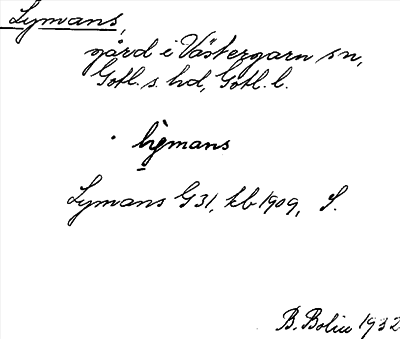 Lymans,
gård i Västergarn sn,
Gotl. s. hd, Gotl. l.
lỳmans
Lymans G31, kb 1909, S.
B. Bolin 1932